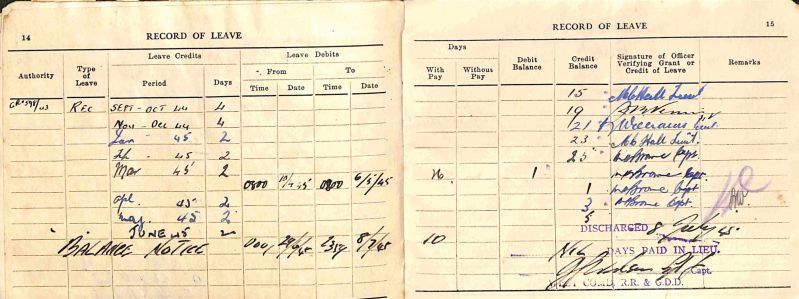 14 RECORD OF LEAVE
Authority
Type of Leave
Leave Credits
Leave Debits
Period
Days
From
To
Time Date Time Date
REC SEPT - OCT 44 4
Nov - Dec 44 4
Jan 45 2
Feb 45 2
Mar 45 2
0800 0800 6/5/45
Apl. 45 2
May 45 2
JUNE 45 2
BALANCE NOTICE 2359 8/7/45
RECORD OF LEAVE 15
Days
With Pay
Without Pay
Debit Balance
Credit Balance
Signature of Officer Verifying Grant or Credit of Leave
Remarks
15 Hall Lieut
19
21 Williams Lieut
23 Hall Lieut.
25 Browne Capt
16 1 Browne Capt
1 Browne Capt
3 Browne Capt.
5
DISCHARGED 8 July 45
10
NIL DAYS PAID IN LIEU.
Capt.
COMD, R.R. & G.D.D.